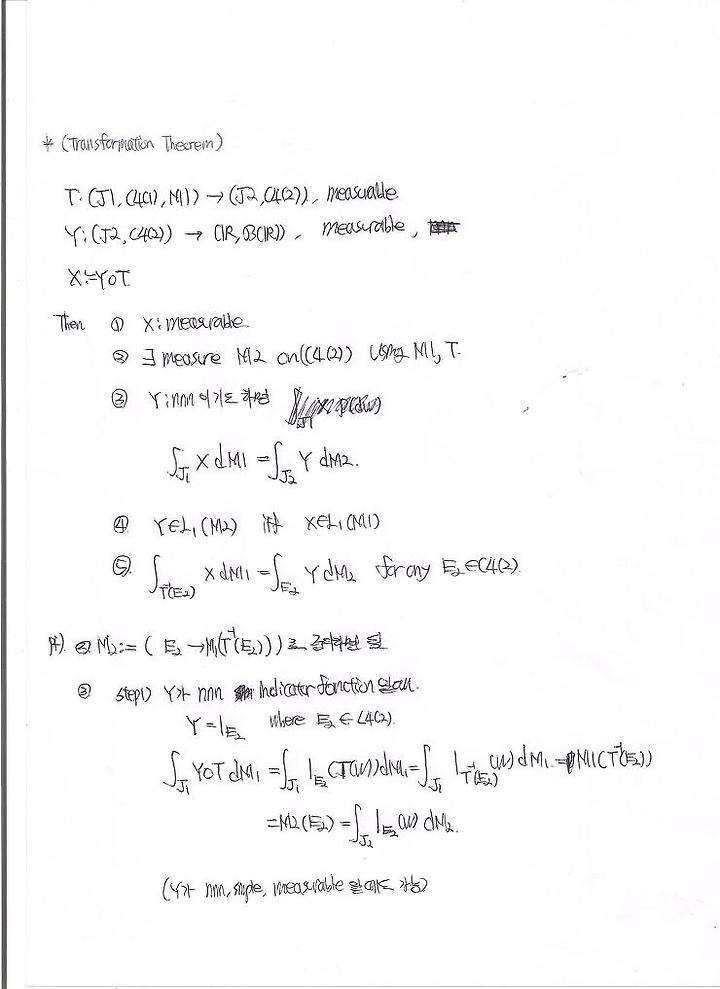 * (Transformation Theorem)
T: (Ω1, A(1), M1) → (Ω2, A(2)), measurable.
Y: (Ω2, A(2)) → (R, B(R)), measurable,
X:=Y∘T
Then ① X: measurable.
② ∃ measure M2 on (A(2)) using M1, T.
③ Y: nnn 이기도 하면
∫_Ω1 X dM1 = ∫_Ω2 Y dM2.
④ Y∈L1(M2) iff X∈L1(M1)
⑤ ∫_T⁻¹(E2) X dM1 = ∫_E2 Y dM2 for any E2∈A(2).
pf) ② M2 := ( E2 → M1(T⁻¹(E2)) )로 됨
③ step1) Y가 nnn Indicator function 일때.
Y = 1_E2 where E2 ∈ A(2).
∫_Ω1 Y∘T dM1 = ∫_Ω1 1_E2 (T(w)) dM1 = ∫_Ω1 1_T⁻¹(E2) (w) dM1 = M1(T⁻¹(E2))
= M2(E2) = ∫_Ω2 1_E2 (w) dM2.
(Y가 nnn, simple, measurable 일 때도 가능)